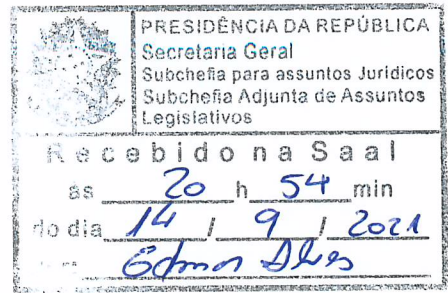 PRESIDÊNCIA DA REPÚBLICA
Secretaria Geral
Subchefia para assuntos Jurídicos
Subchefia Adjunta de Assuntos
Legislativos
Recebido na Saal
às 20 h 54 min
do dia 14 / 9 / 2021
Edmor Alves